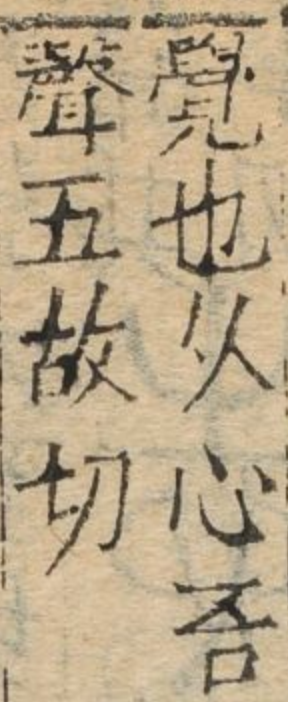 覺也从心吾
聲五故切